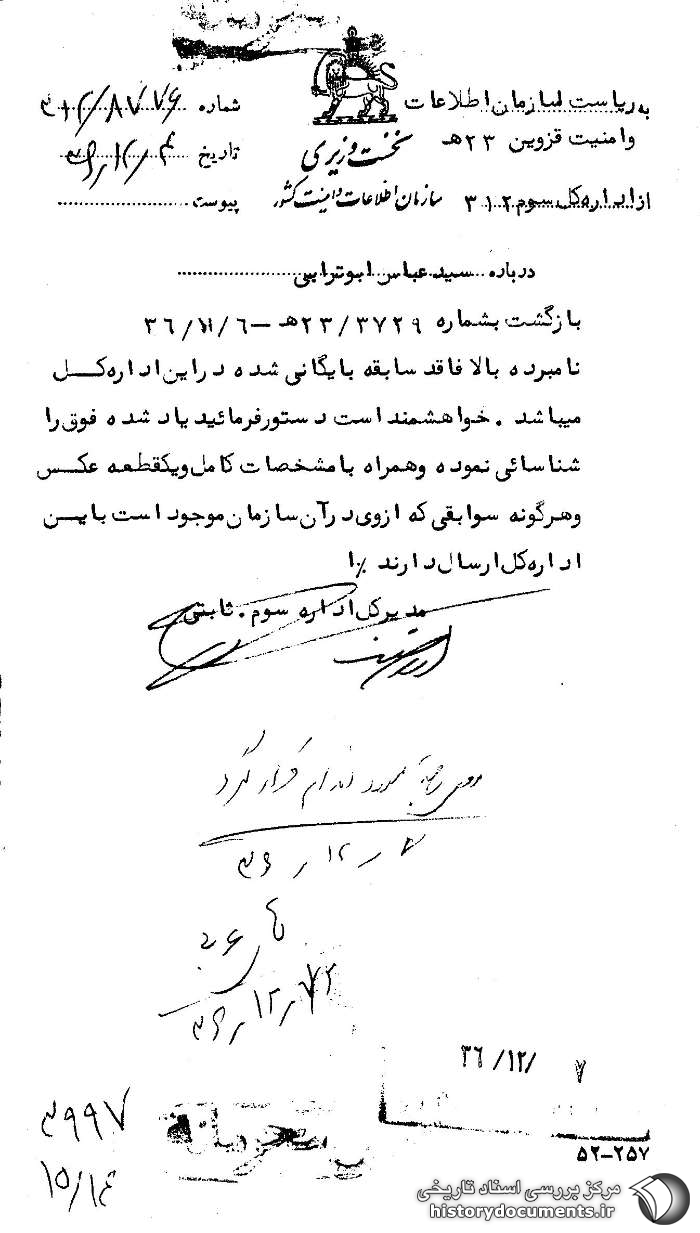 به ریاست سازمان اطلاعات
وامنیت قزوین ۲۳ هـ
از اداره کل سوم ۳۱۲
نخست وزیری
سازمان اطلاعات و امنیت کشور
شماره ۳۱۲/۸۷۷۶
تاریخ
پیوست
درباره سید عباس ابوترابی
بازگشت بشماره ۲۳/۳۷۲۹هـ – ۳۶/۱۱/۶
نامبرده بالا فاقد سابقه بایگانی شده دراین اداره کل
میباشد . خواهشمند است دستورفرمائید یاد شده فوق را
شناسائی نموده وهمراه بامشخصات کامل ویکقطعه عکس
وهرگونه سوابقی که ازوی درآن سازمان موجود است باین
اداره کل ارسال دارند ٪۱
مدیرکل اداره سوم . ثابتی
مورد اقدام قرار گیرد
۳۶/۱۲/۷
۳۶/۱۲/ ۷
۳۹۹۷
۱۵/۱۴
محرمانه
۵۲-۲۵۷
مرکز بررسی اسناد تاریخی
historydocuments.ir